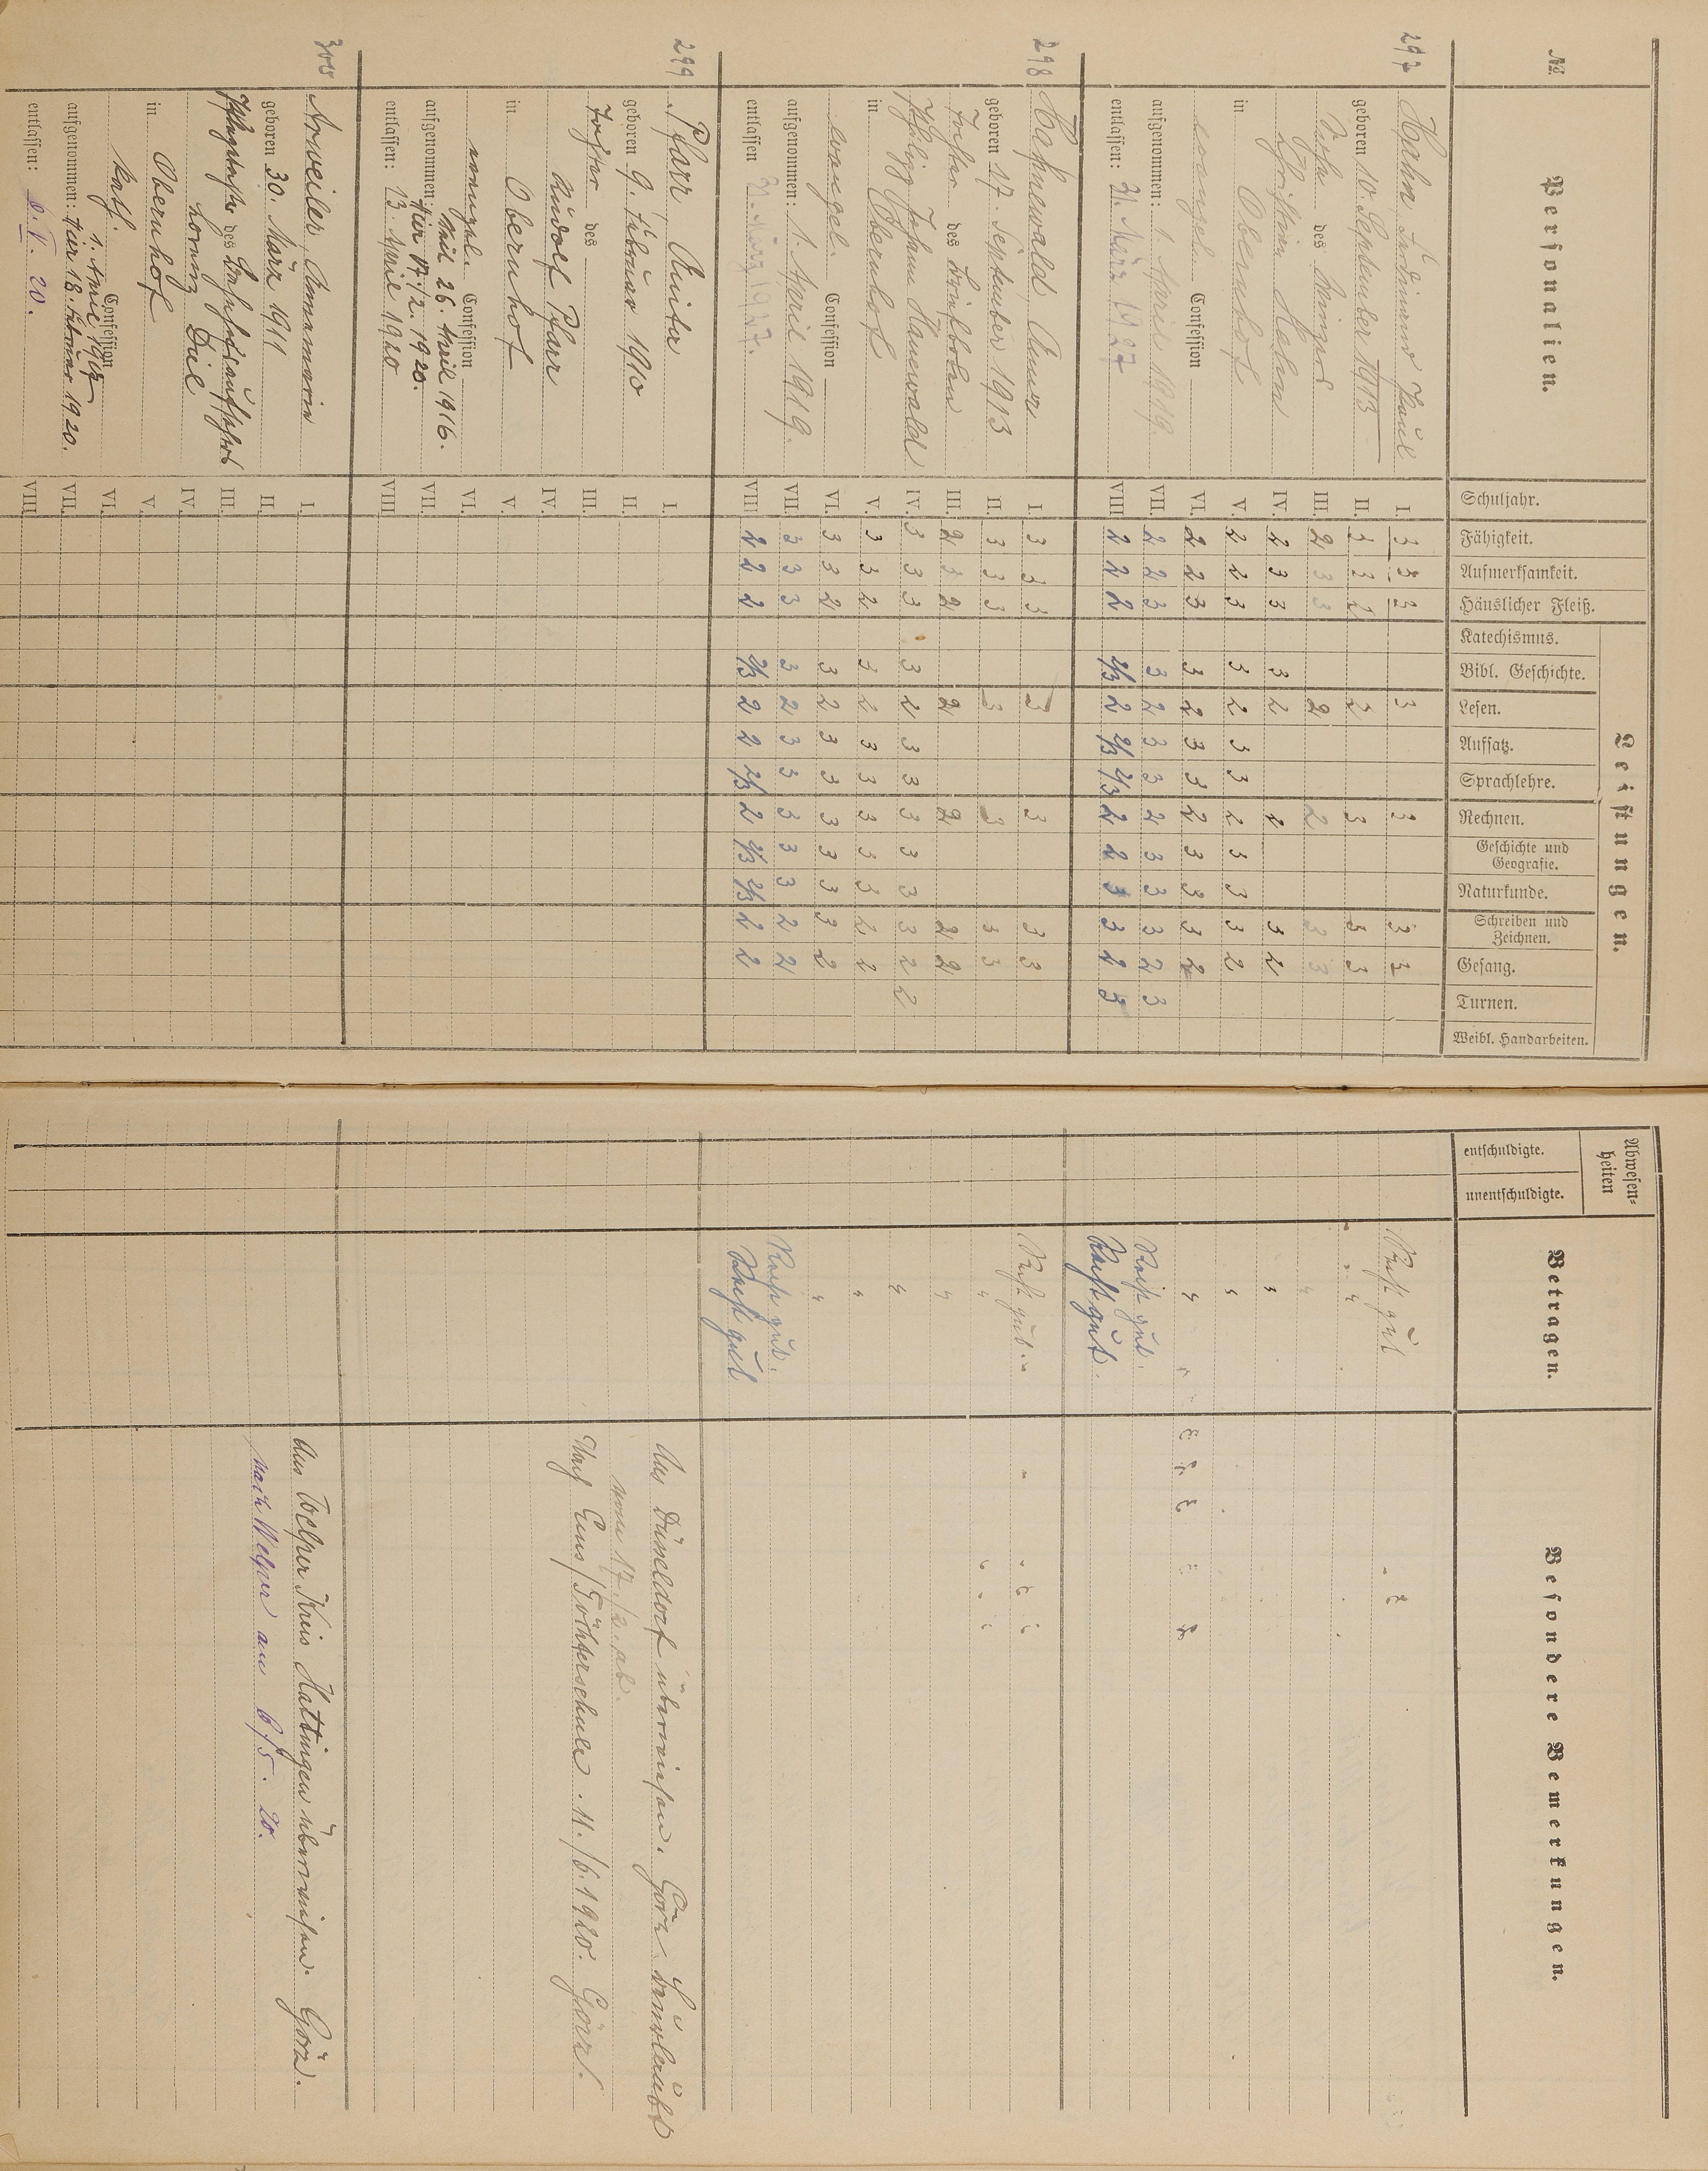 No.
Personalien.
Schuljahr.
Fähigkeit.
Aufmerksamkeit.
Häuslicher Fleiß.
Leistungen.
Katechismus.
Bibl. Geschichte.
Lesen.
Aufsatz.
Sprachlehre.
Rechnen.
Geschichte und Geografie.
Naturkunde.
Schreiben und Zeichnen.
Gesang.
Turnen.
Weibl. Handarbeiten.
Abwesenheiten
entschuldigte.
unentschuldigte.
Betragen.
Besondere Bemerkungen.
297 Hahn, Ferdinand Paul
geboren 10. September 1913
Sohn des Winzers
Christian Hahn
in Obernhof
evangel. Confession
aufgenommen: 1. April 1919.
entlassen: 31. März 1927
I. 3 3 3 3 3 3 3 Recht gut
II. 3 3 2 2 3 3 3 "
III. 2 3 3 2 2 3 3 "
IV. 2 3 3 3 2 2 3 2 "
V. 2 2 3 3 2 3 3 2 3 3 3 2 "
VI. 2 2 3 3 2 3 3 2 3 3 3 2 "
VII. 2 2 3 3 2 3 3 2 3 3 3 2 3 Recht gut.
VIII 2 2 2 2/3 2 2/3 2/3 2 2 3 3 2 3 Recht gut.
298 Hahnewald, Anna
geboren 17. September 1913
Tochter des Briefboten
Philipp Johann Hanewald
in Obernhof
evangel. Confession
aufgenommen: 1. April 1919.
entlassen 31. März 1927.
I. 3 3 3 3 3 3 3 Recht gut.
II. 3 3 3 3 3 3 3 "
III. 2 3 2 2 2 2 2 "
IV. 3 3 3 3 2 3 3 3 3 3 3 2 2 "
V. 3 3 2 3 2 3 3 3 3 3 2 2 "
VI. 3 3 2 3 2 3 3 3 3 3 3 2 "
VII. 3 3 3 3 2 3 3 3 3 3 2 2 Recht gut.
VIII 2 2 2 2/3 2 2 2/3 2 2/3 2/3 2 2 Recht gut
299 Pfarr, Anita
geboren 9. Februar 1910
Tochter des
Rudolf Pfarr
in Obernhof
evangel. Confession
aufgenommen: April 26. April 1916.
Hier 17./2. 1920.
entlassen: 13. April 1920
I.
II.
III.
IV.
V.
VI.
VII.
VIII
Aus Düsseldorf überwiesen. Görz. beurlaubt
vom 17./2. ab.
Nach Ems/Töchterschule. 11./6. 1920. Görz.
300 Arweiler, Annamaria
geboren 30. März 1911
Pflegetochter des Bahnhofsaufsehers
Lorenz Diel
in Obernhof
kath. Confession
1. April 1917
aufgenommen: Hier 18. Februar 1920.
entlassen: 8. V. 20.
I.
II.
III.
IV.
V.
VI.
VII.
VIII
Aus Welper Kreis Hattingen überwiesen. Görz.
nach Welper am 6/5. 20.